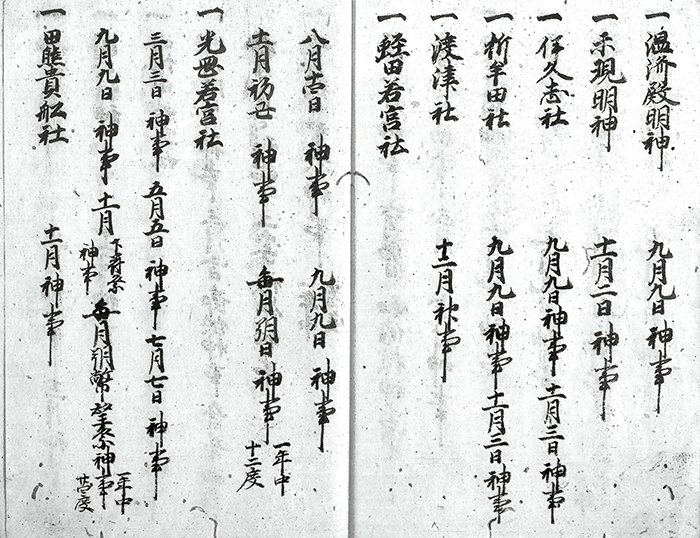 一 温済殿明神 九月九日 神事
一 示現明神 十一月二日 神事
一 伊久志社 九月九日 神事 十一月三日 神事
一 折牟田社 九月九日 神事 十一月三日 神事
一 渡津社 十二月 神事
一 蛭田若宮社
八月十五日 神事 九月九日 神事
十一月初丑 神事 毎月朔日 神事 一年中十二度
一 光岡若宮社
三月三日 神事 五月五日 神事 七月七日 神事
九月九日 神事 十一月 神事 毎月朔幣 神事 一年中
一 田熊貴船社 十一月 神事